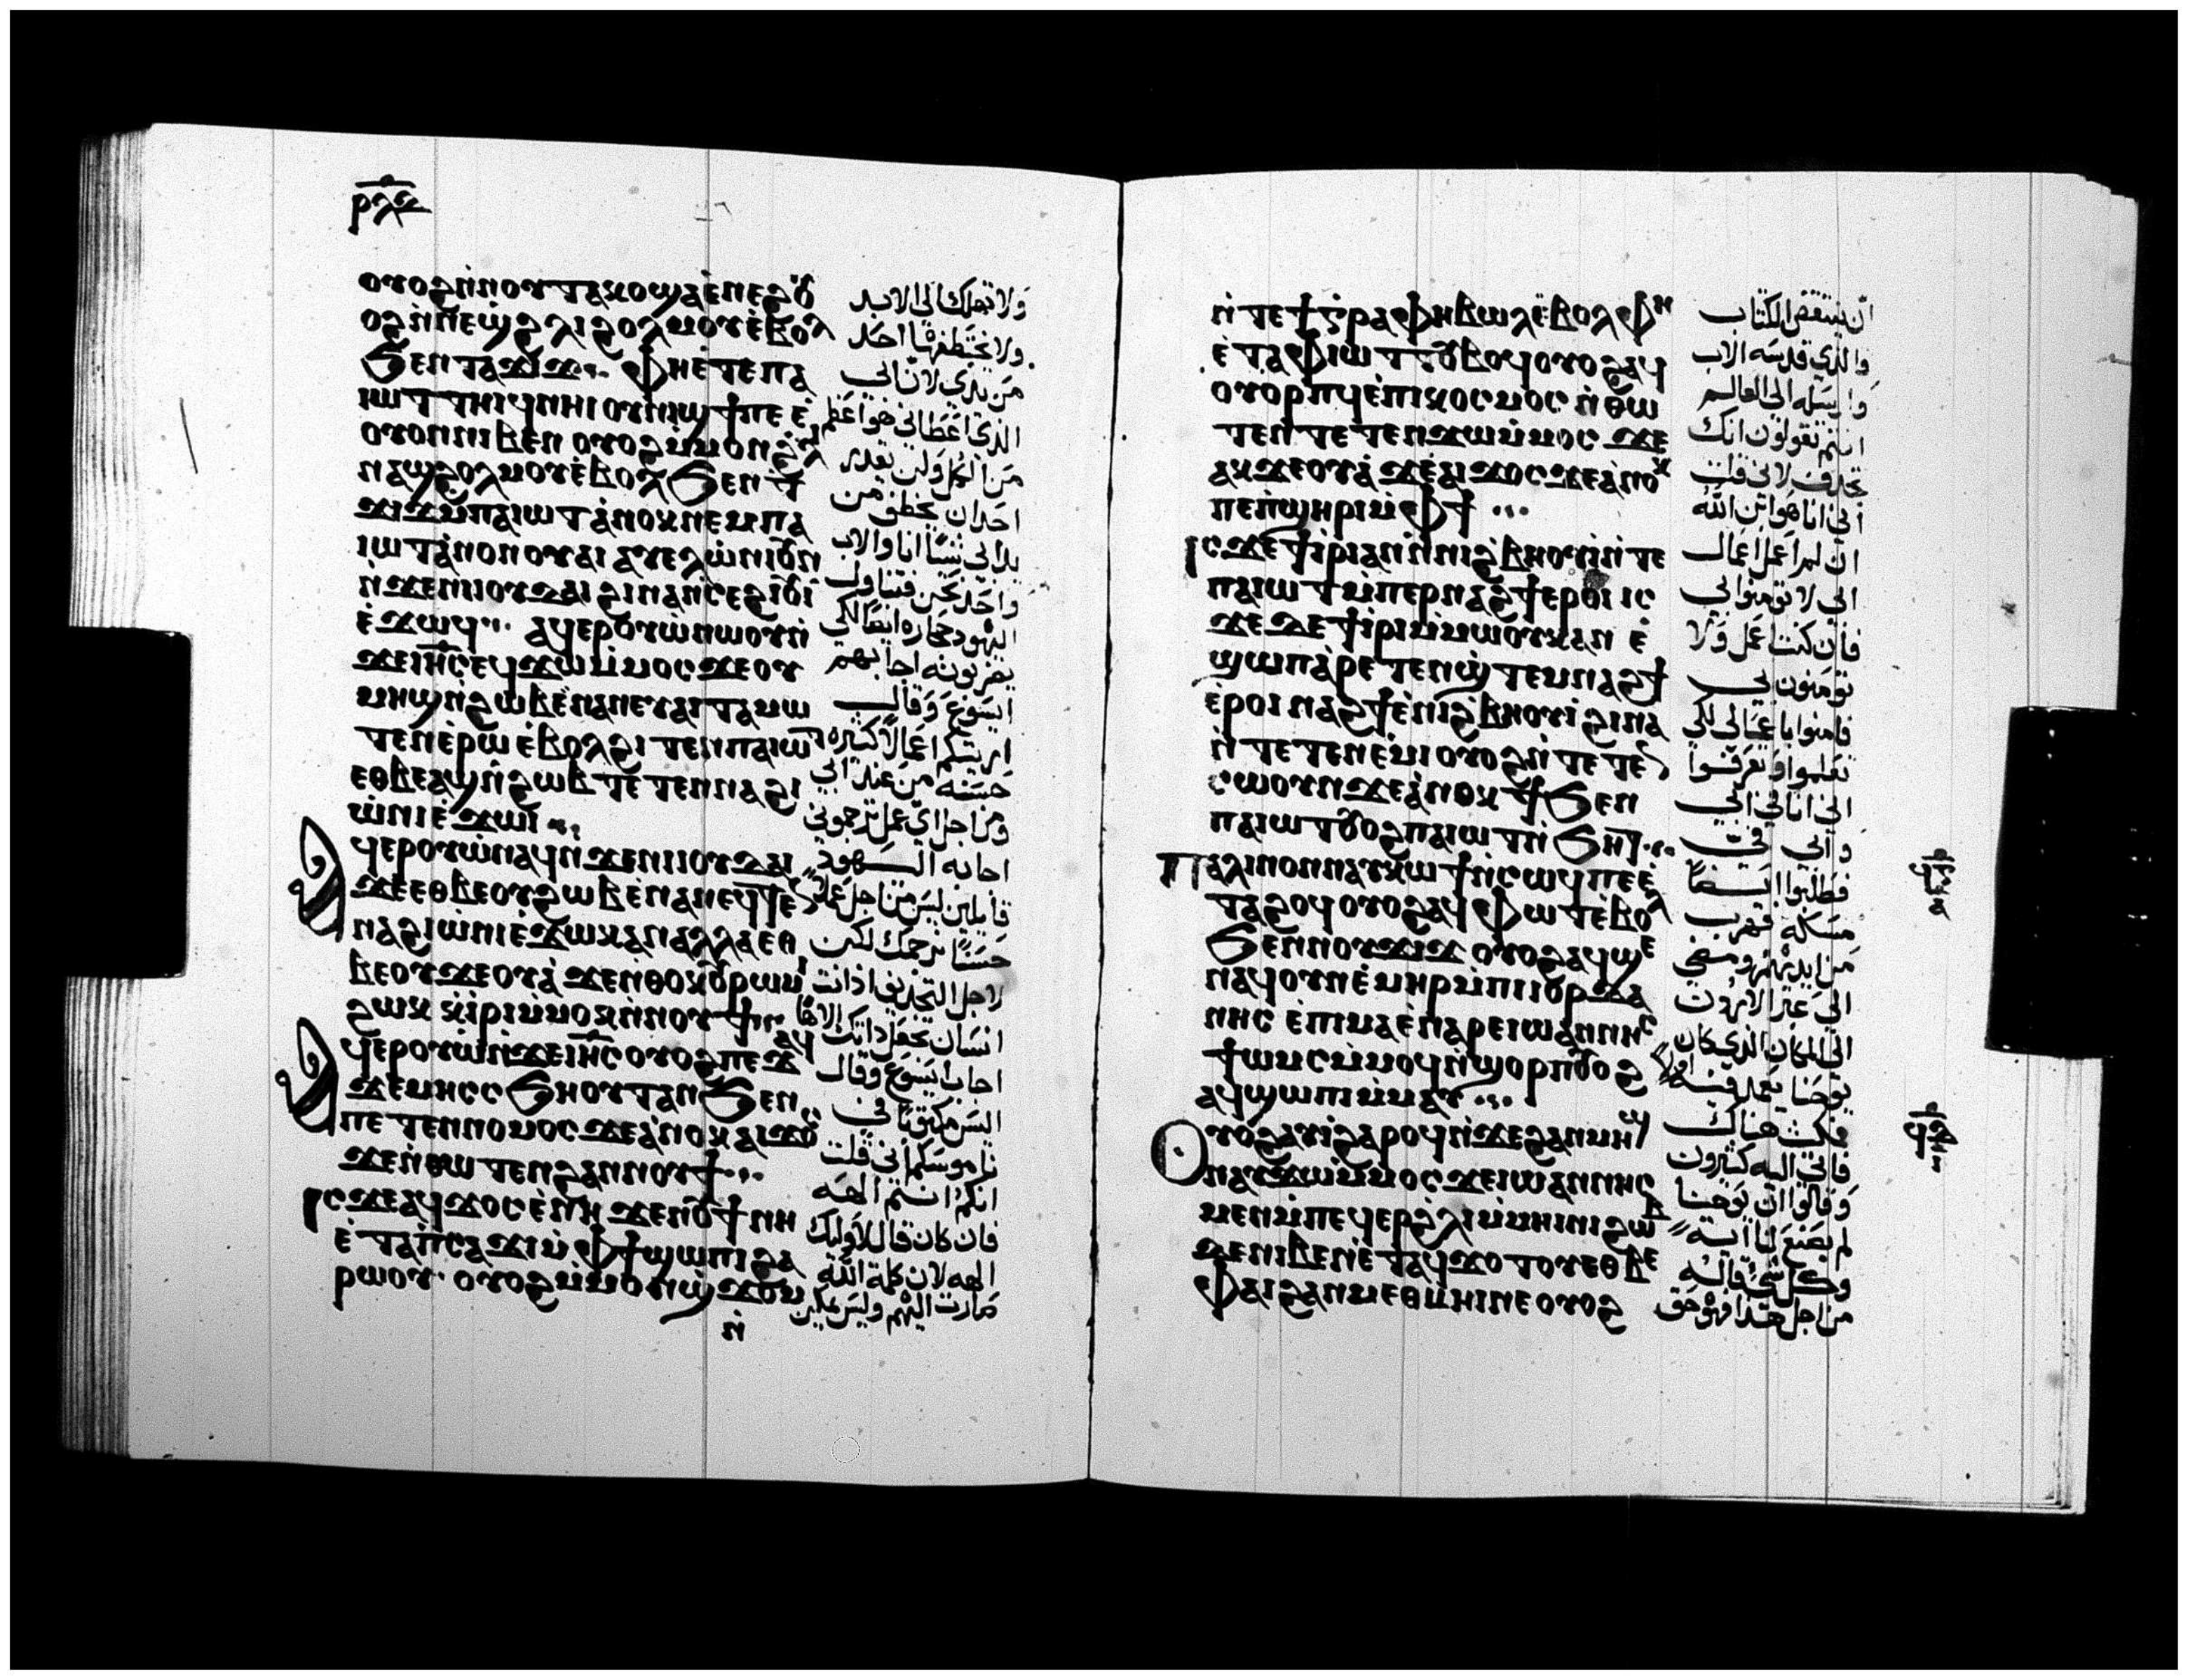 ⲣⲗⲍ
ⲟⲩⲟϩ ⲛ̀ⲛⲟⲩⲧⲁⲕⲟ ϣⲁ ⲉ̀ⲛⲉϩ ⲟⲩ
ⲟϩ ⲛ̀ⲛⲉϣ ϩⲗⲓ ϩⲟⲗⲙⲟⲩ ⲉ̀ⲃⲟⲗ
ϧⲉⲛ ⲧⲁϫⲓϫ ⲫⲏⲉⲧⲉ ⲡⲁ
ⲓⲱⲧ ⲧⲏⲓϥ ⲛⲏⲓ ⲟⲩⲛⲓϣϯ ⲡⲉ ⲉ̀
ⲟⲩⲟⲛ ⲛⲓⲃⲉⲛ ⲟⲩⲟϩ ⲙ̀ⲙⲟⲛ ϩ̀ⲗⲓ
ⲛⲁϣϩⲟⲗⲙⲟⲩ ⲉ̀ⲃⲟⲗ ϧⲉⲛ ⲧ
ϫⲓϫ ⲙ̀ⲡⲁⲓⲱⲧ ⲁ̀ⲛⲟⲕ ⲛⲉⲙ ⲡⲁ
ⲓⲱⲧ ⲁ̀ⲛⲟⲛ ⲟⲩⲁⲓ ⲁⲩⲉⲗ ⲱ̀ⲛⲓ ⲟⲩⲛ
ⲛ̀ϫⲉ ⲛⲓⲓⲟⲩⲇⲁⲓ ϩⲓⲛⲁ ⲛ̀ⲥⲉϩⲓⲟⲩⲓ
ⲉ̀ϫⲱϥ ⲁϥⲉⲣⲟⲩⲱ̀ ⲛⲱⲟⲩ ⲛ̀
ϫⲉ ⲓⲏⲥ ⲉϥϫⲱ ⲙ̀ⲙⲟⲥ ϫⲉ ⲟⲩ
ⲙⲏϣ ⲛ̀ϩⲱⲃ ⲉ̀ⲛⲁⲛⲉⲩ ⲁⲓⲧⲁⲙⲱ
ⲧⲉⲛ ⲉ̀ⲣⲱⲟⲩ ⲉ̀ⲃⲟⲗ ϩⲓⲧⲉⲛ ⲡⲁⲓⲱⲧ
ⲉⲑⲃⲉ ⲁϣ ⲛ̀ϩⲱⲃ ⲧⲉⲧⲉⲛⲛⲁϩⲓ
ⲱ̀ⲛⲓ ⲉ̀ϫⲱⲓ
ⲁϥⲉⲣⲟⲩⲱ̀ ⲛⲁϥ ⲛ̀ϫⲉ ⲛⲓⲓⲟⲩⲇⲁⲓ
ϫⲉ ⲉⲑⲃⲉ ⲟⲩϩⲱⲃ ⲉ̀ⲛⲁⲛⲉϥ ⲧⲉⲛ
ⲛⲁϩⲓⲱ̀ⲛⲓ ⲉ̀ϫⲱⲕ ⲁⲛ ⲁⲗⲗⲁ ⲉⲑ
ⲃⲉ ⲟⲩϫⲉⲟⲩⲁ̀ ϫⲉ ⲛ̀ⲑⲟⲕ ⲟⲩⲣⲱⲙⲓ
ϩⲱⲕ ⲕ̀ⲓⲣⲓ ⲙ̀ⲙⲟⲕ ⲛ̀ⲛⲟⲩϯ
ⲁϥⲉⲣⲟⲩⲱ̀ ⲛ̀ϫⲉ ⲓⲏⲥ ⲟⲩⲟϩ ⲡⲉϫⲁϥ
ϫⲉ ⲙⲏ ⲥⲥϧⲏⲟⲩⲧ ⲁⲛ ϧⲉⲛ
ⲡⲉⲧⲉⲛⲛⲟⲙⲟⲥ ϫⲉ ⲁ̀ⲛⲟⲕ ⲁⲓϫⲟⲥ
ϫⲉ ⲛ̀ⲑⲱⲧⲉⲛ ϩⲁⲛⲛⲟⲩϯ
ⲓⲥϫⲉ ⲁϥϫⲟⲥ ⲉ̀ⲛⲏ ϫⲉ ⲛⲟⲩϯ ⲛⲏ
ⲉ̀ⲧⲁ ⲡ̀ⲥⲁϫⲓ ⲙ̀ⲫϯ ϣⲱⲡⲓ ϩⲁ
ⲣⲱⲟⲩ ⲟⲩⲟϩ ⲙ̀ⲙⲟⲛ ϣϫⲟⲙ
ⲛ̀
ولا تهلك الى الابد
ولا يختطفها احد
من يدي لان ابي
الذي اعطاني هو اعظم
من الكل ولن يقدر
احد ان يخطف من
يد ابي شيًا انا والاب
واحد نحن فتناول
اليهود حجاره ايضا لكي
يضربونه اجابهم
ايسوع وقال
اريتكم اعمالا كثيره
حسنه من عند ابي
ومن اجل اي عمل ترجموني
اجابه اليهود
قايلين ليس من اجل عملا
حسنًا نرجمك لكن
لاجل التجديف اذ انت
انسان تجعل ذاتك الاها
اجاب ايسوع وقال
اليس مكتوبًا في
ناموسكم اني قلت
انكم انتم الهه
فان كان قال لاوليك
الهه لان كلمة الله
صارت اليهم وليس يمكن
ⲛ̀ⲧⲉ ϯⲅⲣⲁⲫⲏ ⲃⲱⲗ ⲉ̀ⲃⲟⲗ ⲫⲏ
ⲉ̀ⲧⲁ ⲫⲓⲱⲧ ⲧⲟⲩⲃⲟϥ ⲟⲩⲟϩ ⲁϥ
ⲟⲩⲟⲣⲡϥ ⲉ̀ⲡⲓⲕⲟⲥⲙⲟⲥ ⲛ̀ⲑⲱ
ⲧⲉⲛ ⲧⲉⲧⲉⲛϫⲱ ⲙ̀ⲙⲟⲥ ϫⲉ
ⲁⲕϫⲉⲟⲩⲁ̀ ϫⲉ ⲁⲓϫⲟⲥ ϫⲉ ⲁ̀ⲛⲟⲕ
ⲡⲉ ⲡ̀ϣⲏⲣⲓ ⲙ̀ⲫϯ
ⲓⲥϫⲉ ϯⲓⲣⲓ ⲁⲛ ⲛ̀ⲛⲓϩ̀ⲃⲏⲟⲩⲓ ⲛ̀ⲧⲉ
ⲡⲁⲓⲱⲧ ⲙ̀ⲡⲉⲣⲛⲁϩϯ ⲉⲣⲟⲓ ⲓⲥ
ϫⲉ ⲇⲉ ϯⲓⲣⲓ ⲙ̀ⲙⲱⲟⲩ ⲕⲁⲛ ⲉ̀
ϣⲱⲡ ⲁ̀ⲣⲉⲧⲉⲛϣ̀ⲧⲉⲙⲛⲁϩϯ
ⲉ̀ⲣⲟⲓ ⲛⲁϩϯ ⲉ̀ⲛⲓϩ̀ⲃⲏⲟⲩⲓ ϩⲓⲛⲁ
ⲛ̀ⲧⲉⲧⲉⲛⲉ̀ⲙⲓ ⲟⲩⲟϩ ⲛ̀ⲧⲉⲧⲉⲛ
ⲥⲱⲟⲩⲛ ϫⲉ ⲁ̀ⲛⲟⲕ ϯϧⲉⲛ
ⲡⲁⲓⲱⲧ ⲟⲩⲟϩ ⲡⲁⲓⲱⲧ ⲛ̀ϧⲏⲧ
ⲡⲁⲗⲓⲛ ⲟⲛ ⲛⲁⲩⲕⲱϯ ⲛ̀ⲥⲱϥ ⲡⲉ ⲉ̀
ⲧⲁϩⲟϥ ⲟⲩⲟϩ ⲁϥⲫⲱⲧ ⲉ̀ⲃⲟⲗ
ϧⲉⲛ ⲛⲟⲩϫⲓϫ ⲟⲩⲟϩ ⲁϥϣⲉ
ⲛⲁϥ ⲟⲛ ⲉ̀ⲙⲏⲣ ⲙ̀ⲡⲓⲓⲟⲣⲇⲁ
ⲛⲏⲥ ⲉ̀ⲡⲓⲙⲁ ⲉ̀ⲛⲁⲣⲉ ⲓⲱⲁⲛⲛⲏⲥ
ϯⲱⲙⲥ ⲙ̀ⲙⲟϥ ⲛ̀ϣⲟⲣⲡ ⲟⲩⲟϩ
ⲁϥϣⲱⲡⲓ ⲙ̀ⲙⲁⲩ
ⲟⲩⲟϩ ⲁⲩⲓ̀ ϩⲁⲣⲟϥ ⲛ̀ϫⲉ ϩⲁⲛⲙⲏϣ
ⲛⲁⲩϫⲱ ⲙ̀ⲙⲟⲥ ϫⲉ ⲓⲱⲁⲛⲛⲏⲥ
ⲙⲉⲛ ⲙ̀ⲡⲉϥⲉⲣ ϩ̀ⲗⲓ ⲙ̀ⲙⲏⲓⲛⲓ ϩⲱⲃ
ⲇⲉ ⲛⲓⲃⲉⲛ ⲉ̀ⲧⲁϥϫⲟⲧⲟⲩ ⲉⲑⲃⲉ
ⲫⲁⲓ ϩⲁⲛⲙⲉⲑⲙⲏⲓ ⲛⲉ ⲟⲩⲟϩ
ان ينتقض الكتاب
والذي قدسه الاب
وارسله الى العالم
انتم تقولون انك
تجدف لاني قلت
اني انا هو ابن الله
ان لم اعمل اعمال
ابي لا تومنوا بي
فان كنت اعمل ولا
تومنون بي
فامنوا باعمالي لكي
تعلموا وتعرفوا
اني انا في ابي
وابي فيَّ
فطلبوا ايضًا
مسكه فهرب
من ايديهم ومضى
الى عبر الاردن
الى المكان الذي كان
يوحنا يعمد فيه اولا
فمكث هناك
فاتى اليه كثيرون
وقالوا ان يوحنا
لم يصنع لنا اية
وكل شي قاله
من اجل هذا فهو حق